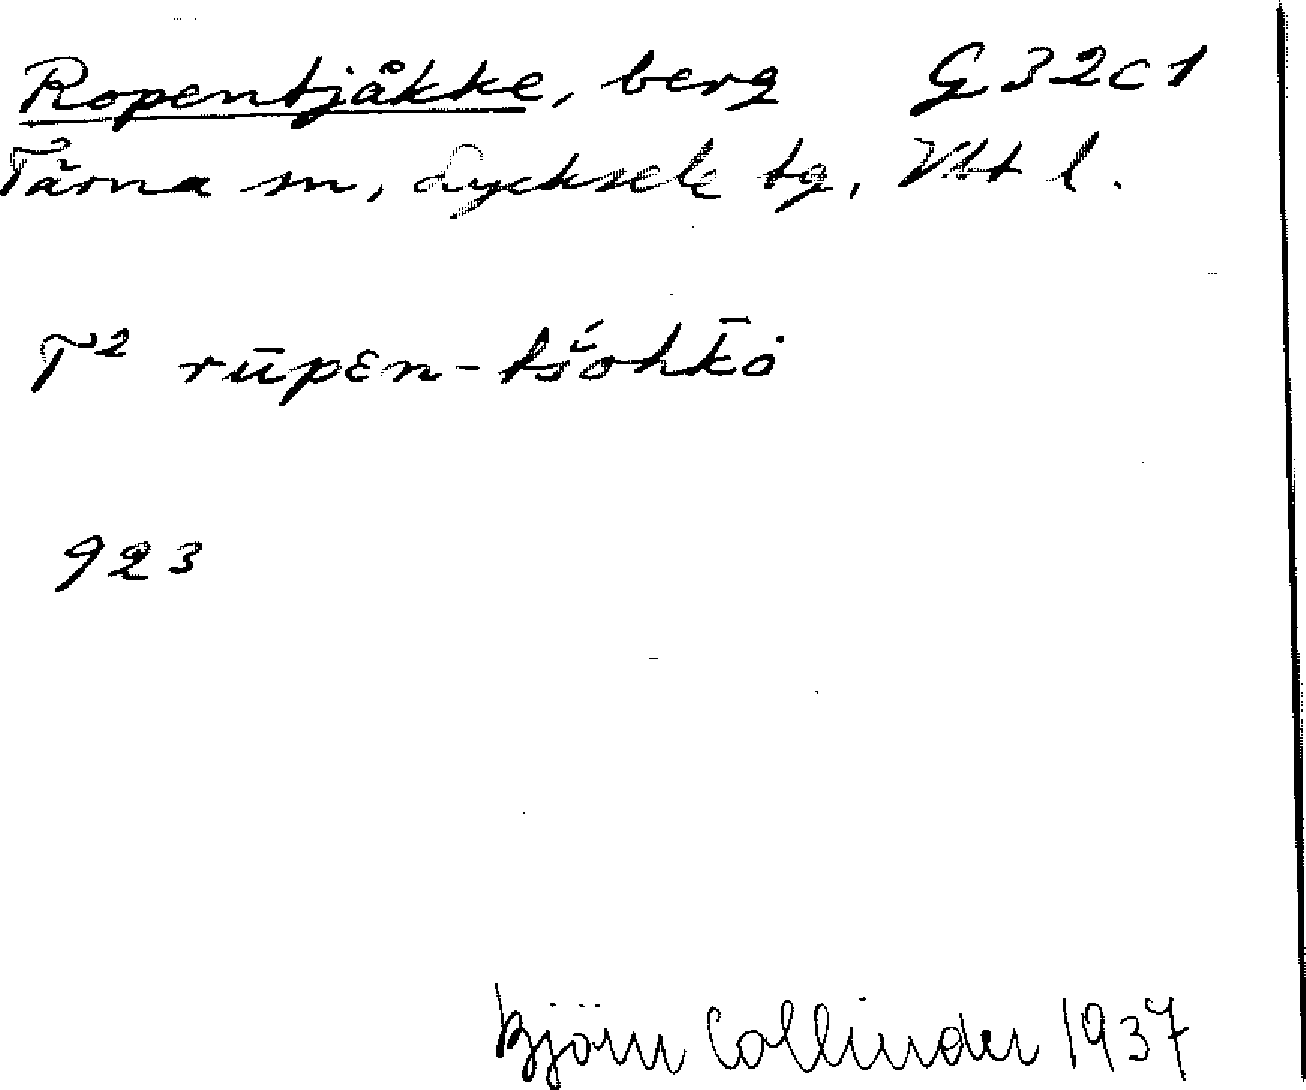 Ropentjåkke, berg G 32 c 1
Tärna sn, Lycksele tg, Vbt l.
T² rūpεn-tšŏ́hk̄ȯ
923
Björn Collinder 1937